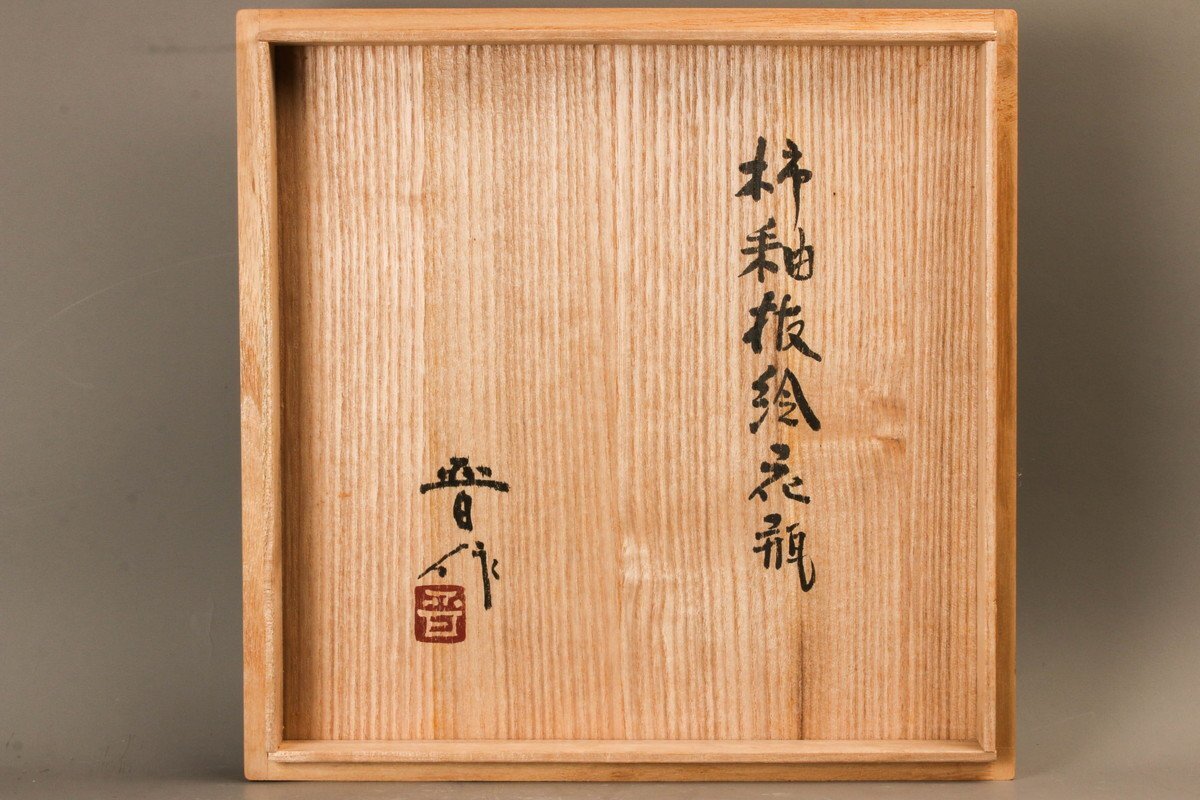 柿釉抜絵花瓶
晋作
晋